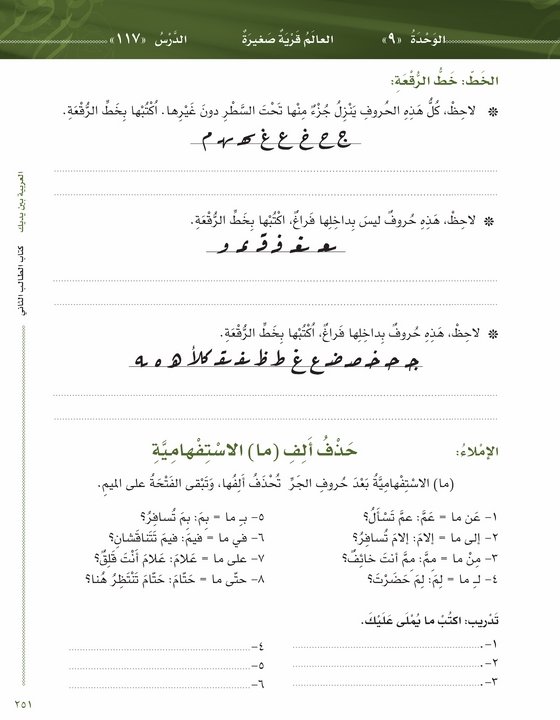 الوَحْدَةُ «٩» العالَمُ قَرْيَةٌ صَغيرَةٌ الدَّرْسُ «١١٧»
الخَطّ: خَطُّ الرُّقْعَةِ:
❋ لاحِظْ، كُلُّ هَذِهِ الحُروفِ يَنْزِلُ جُزْءٌ مِنْها تَحْتَ السَّطْرِ دونَ غَيْرِها. اُكْتُبْها بِخَطِّ الرُّقْعَةِ.
ج ح خ ع غ ـهـ ـهـ م
❋ لاحِظْ، هَذِهِ حُروفٌ ليسَ بِداخِلِها فَراغٌ، اكْتُبْها بِخَطِّ الرُّقْعَةِ.
❋ لاحِظْ، هَذِهِ حُروفٌ بِداخِلِها فَراغٌ، اُكْتُبْها بِخَطِّ الرُّقْعَةِ.
الإمْلاءُ: حَذْفُ أَلِفِ (ما) الاسْتِفْهامِيَّةِ
(ما) الاسْتِفْهامِيَّةُ بَعْدَ حُروفِ الجَرِّ تُحْذَفُ أَلِفُها، وَتَبْقى الفَتْحَةُ على الميمِ.
١- عَن ما = عَمَّ: عمَّ تَسْأَلُ؟
٢- إلى ما = إلامَ: إلامَ تُسافِرُ؟
٣- مِنْ ما = مِمَّ: مِمَّ أنتَ خائِفٌ؟
٤- لـِ ما = لِمَ: لِمَ حَضَرْتَ؟
٥- بـِ ما = بِمَ: بِمَ تُسافِرُ؟
٦- في ما = فيمَ: فيمَ تَتَناقَشانِ؟
٧- على ما = عَلامَ: عَلامَ أَنْتَ قَلِقٌ؟
٨- حتّى ما = حَتّامَ: حَتّامَ تَنْتَظِرُ هُنا؟
تَدْريب: اكتُبْ ما يُمْلَى عَلَيْكَ.
١-
٢-
٣-
٤-
٥-
٦-
العربية بين يديك كتاب الطالب الثاني
٢٥١